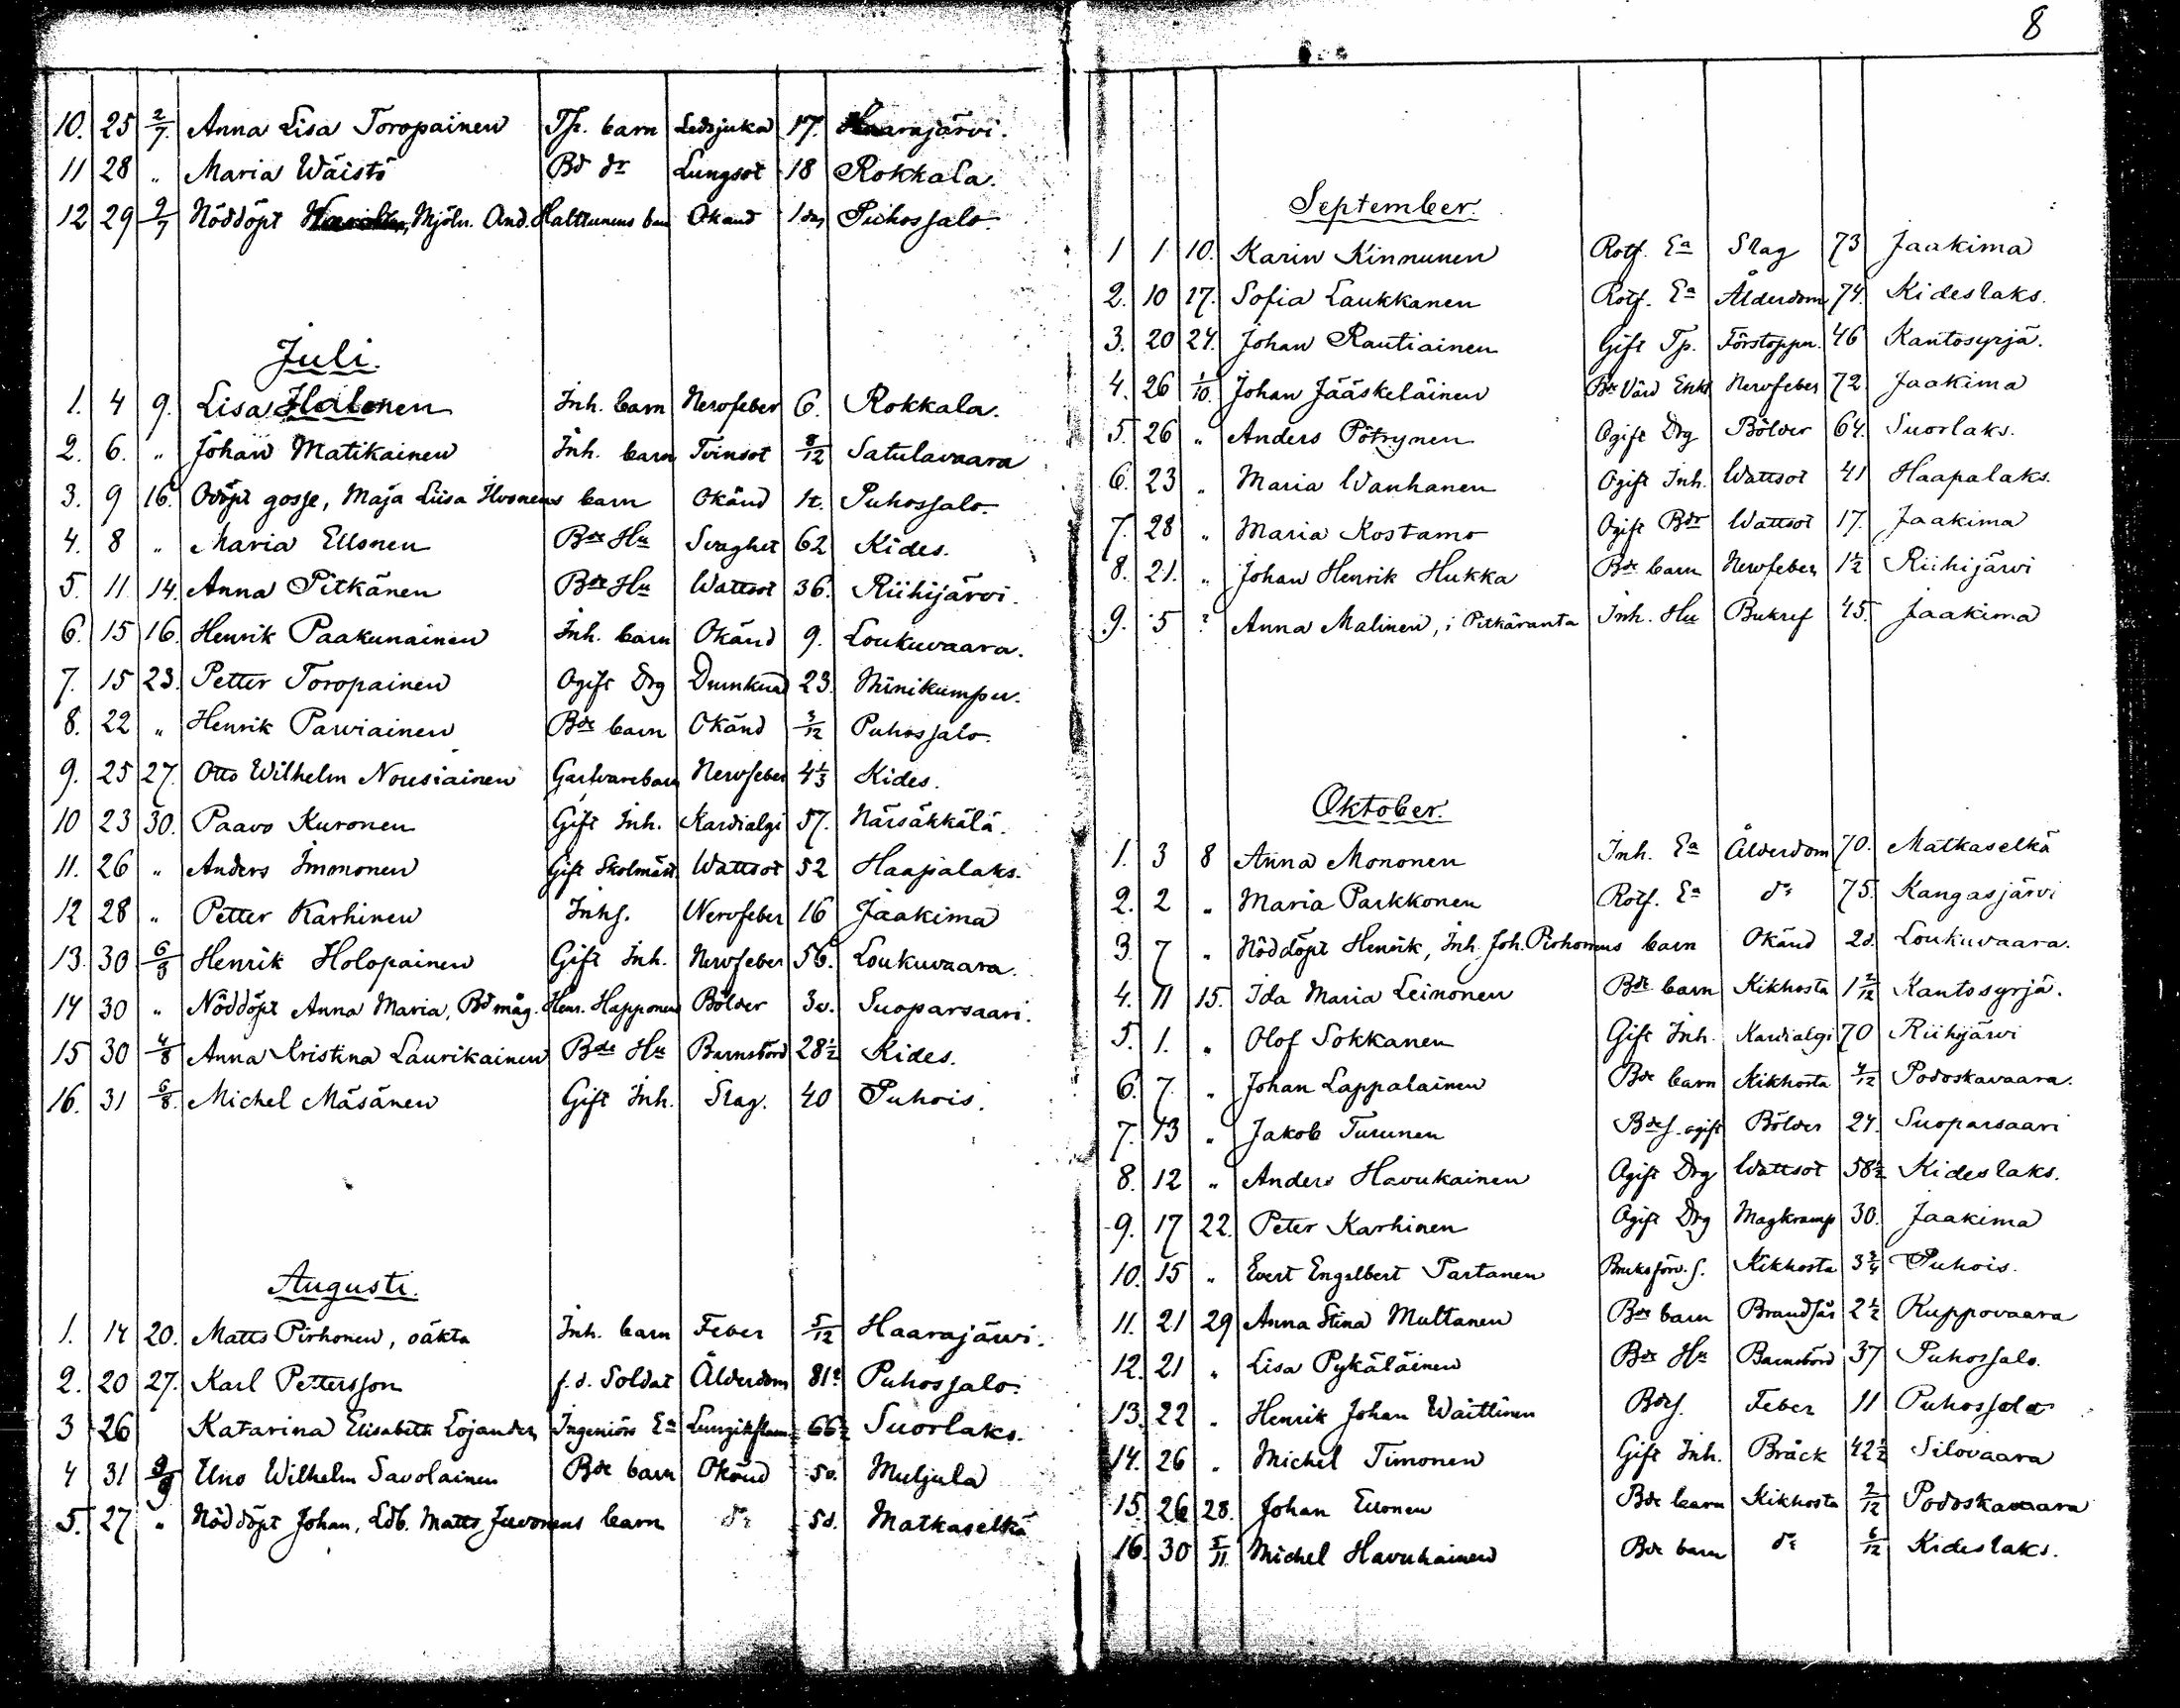 10. 25 2/7. Anna Lisa Toropainen Tp. barn Ledsjuka 17. Haarajärvi.
11 28 „ Maria Wäistö Bd dr Lungsot 18 Rokkala.
12 29 9/7 Nöddöpt Mjöln. And. Halttunens barn Okänd Puhossalo.
Juli.
1. 4 9. Lisa Halonen Inh. barn Nervfeber 6. Rokkala.
2. 6. „ Johan Matikainen Inh. barn Tvinsot 8/12 Satulavaara
3. 9 16. Odöpt gosse, Maja Liisa Ilvonens barn Okänd 1t. Puhossalo.
4. 8 „ Maria Ellonen Bde Hu Svaghet 62 Kides.
5. 11 14. Anna Pitkänen Bde Hu Wattsot 36. Riihijärvi.
6. 15 16. Henrik Paakunainen Inh. barn Okänd 9. Loukuvaara.
7. 15 23. Petter Toropainen Ogift Drg Drunknad 23. Niinikumpu.
8. 22 „ Henrik Parviainen Bde barn Okänd 3/12 Puhossalo.
9. 25 27. Otto Wilhelm Nousiainen Garfvarebarn Nervfeber 4 1/3 Kides.
10 23 30. Paavo Kuronen Gift Inh. Kardialgi 57. Närsäkkälä.
11. 26 „ Anders Immonen Gift Skolmäst. Wattsot 52 Haapalaks.
12 28 „ Petter Karhinen Inhs. Nervfeber 16 Jaakima
13. 30 6/8 Henrik Holopainen Gift Inh. Nervfeber 56. Loukuvaara.
14 30 „ Nöddöpt Anna Maria, Bd måg. Henr. Happonens Bölder 3v. Suoparsaari.
15 30 4/8 Anna Kristina Laurikainen Bde Hu Barnsbörd 28½ Kides.
16. 31 6/8. Michel Mäsänen Gift Inh. Slag. 40 Puhois.
Augusti.
1. 14 20. Matts Pirhonen, oäkta Inh. barn Feber 5/12 Haarajärvi.
2. 20 27. Karl Pettersson f.d. Soldat Ålderdom 81? Puhossalo.
3 26 Katarina Elisabeth Lojander Ingeniörs Ea 66½ Suorlaks.
4 31 Uno Wilhelm Savolainen Bde barn Okänd 5v. Muljula
5. 27 „ Nöddöpt Johan, Ldb. Matts Juvonens barn dr 5d. Matkaselkä
8
September.
1 1 10. Karin Kinnunen Rotf. Ea Slag 73 Jaakima
2. 10 17. Sofia Laukkanen Rotf. Ea Ålderdom 74. Kideslaks.
3. 20 24. Johan Rautiainen Gift Tp. Förstoppn. 46 Kantosyrjä.
4. 26 1/10. Johan Jääskeläinen Bde Värd Enkl. Nervfeber 72. Jaakima
5. 26 „ Anders Pötrynen Ogift Drg Bölder 64. Suorlaks.
6. 23 „ Maria Wanhanen Ogift Inh. Wattsot 41 Haapalaks.
7. 28 „ Maria Kostamo Ogift Bdr Wattsot 17. Jaakima
8. 21. „ Johan Henrik Hukka Bde barn Nervfeber 1½ Riihijärvi
9. 5 ? Anna Malinen, i Pitkäranta Inh. Hu Bukref 45. Jaakima
Oktober.
1. 3 8 Anna Mononen Inh. Ea Ålderdom 70. Matkaselkä
2. 2 „ Maria Parkkonen Rotf. Ea dr 75. Kangasjärvi
3. 7 „ Nöddöpt Henrik, Inh. Joh. Pirhonens barn Okänd 2d. Loukuvaara.
4. 11 15. Ida Maria Leinonen Bde barn Kikhosta 1 2/12 Kantosyrjä.
5. 1. „ Olof Sokkanen Gift Inh. Kardialgi 70 Riihijärvi
6. 7. „ Johan Lappalainen Bde barn Kikhosta 4/12 Podoskavaara.
7. 13 „ Jakob Turunen Bdes. ogift Bölder 24. Suoparsaari
8. 12 „ Anders Havukainen Ogift Drg Wattsot 58½ Kideslaks.
9. 17 22. Peter Karhinen Ogift Drg Magkramp 30. Jaakima
10. 15 „ Evert Engelbert Partanen Bruksförv. s. Kikhosta 3¾ Puhois.
11. 21 29 Anna Stina Multanen Bde barn Brandsår 2½ Kuppovaara
12. 21 „ Lisa Pykäläinen Bde Hu Barnsbörd 37 Puhossalo.
13. 22 „ Henrik Johan Waittinen Bdes. Feber 11 Puhossalo
14. 26 „ Michel Timonen Gift Inh. Bråck 42½ Silovaara
15. 26 28. Johan Ellonen Bde barn Kikhosta 2/12 Podoskavaara
16. 30 5/11 Michel Havukainen Bde barn dr 6/12 Kideslaks.